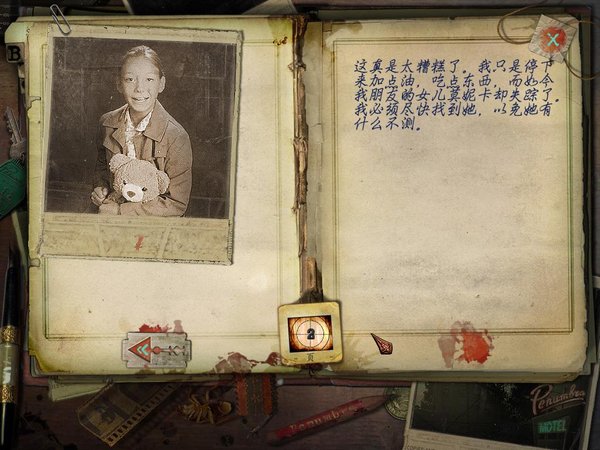 B
X
这真是太糟糕了。我只是停下
来加点油，吃点东西，而如今
我朋友的女儿莫妮卡却失踪了。
我必须尽快找到她，以免她有
什么不测。
2
页
Penumbra
Penumbra
MOTEL